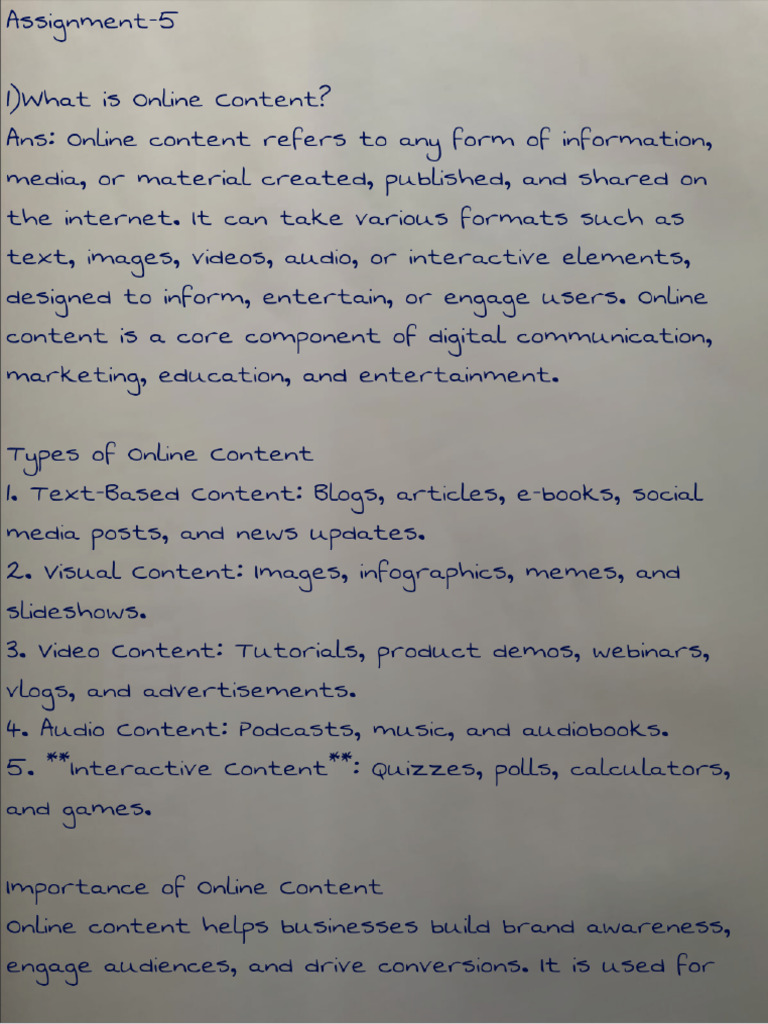 Assignment-5
1)What is Online Content?
Ans: Online content refers to any form of information,
media, or material created, published, and shared on
the internet. It can take various formats such as
text, images, videos, audio, or interactive elements,
designed to inform, entertain, or engage users. Online
content is a core component of digital communication,
marketing, education, and entertainment.
Types of Online Content
1. Text-Based Content: Blogs, articles, e-books, social
media posts, and news updates.
2. Visual Content: Images, infographics, memes, and
slideshows.
3. Video Content: Tutorials, product demos, webinars,
vlogs, and advertisements.
4. Audio Content: Podcasts, music, and audiobooks.
5. **Interactive Content**: Quizzes, polls, calculators,
and games.
Importance of Online Content
Online content helps businesses build brand awareness,
engage audiences, and drive conversions. It is used for